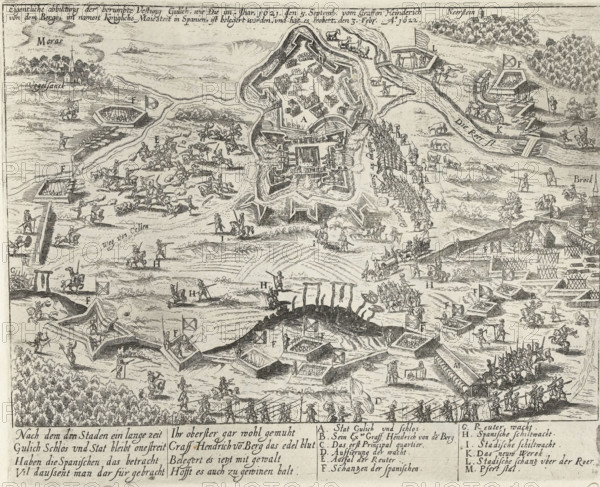 Eigentliche abbilttung der berumpte Vestung Gulich, wie Die im Jhar 1621 den 5. Septemb. vom Graffen Heinderich
von dem Berge, im namen Königliche Maiesteit in Spanien, ist belegert worden, und hat es erobert den 3. Febr. A° 1622.
Neerstein
Merae
Vogelsanck
Die Roer fl.
Broeck
Weg von Collen
Nach dem den Staden ein lange zeit
Gulich Schlos und Stat bleibt onestreit
Haben die Spanischen das betracht
Vil daufzent man dar für gebracht
Ihr oberster gar wohl gemuht
Graff Hendrich vō Berg das edel blut
Belegert es ietzt mit gewalt
Hofft es auch zu gewinen balt
A. Stat Gulich und schlos.
B. Sein Ex.tie Graff Hendrich von dē Berg
C. Das erst Principal quartier.
D. Auffürung der wacht
E. Anfal der Reuter.
F. Schantzen der spanischen.
G. Reuter wacht
H. Spanische schiltwacht
I. Stadische schiltwacht
K. Das neuw Werck
L. Stadische schantz uber der Roer
M. Pfert stal.